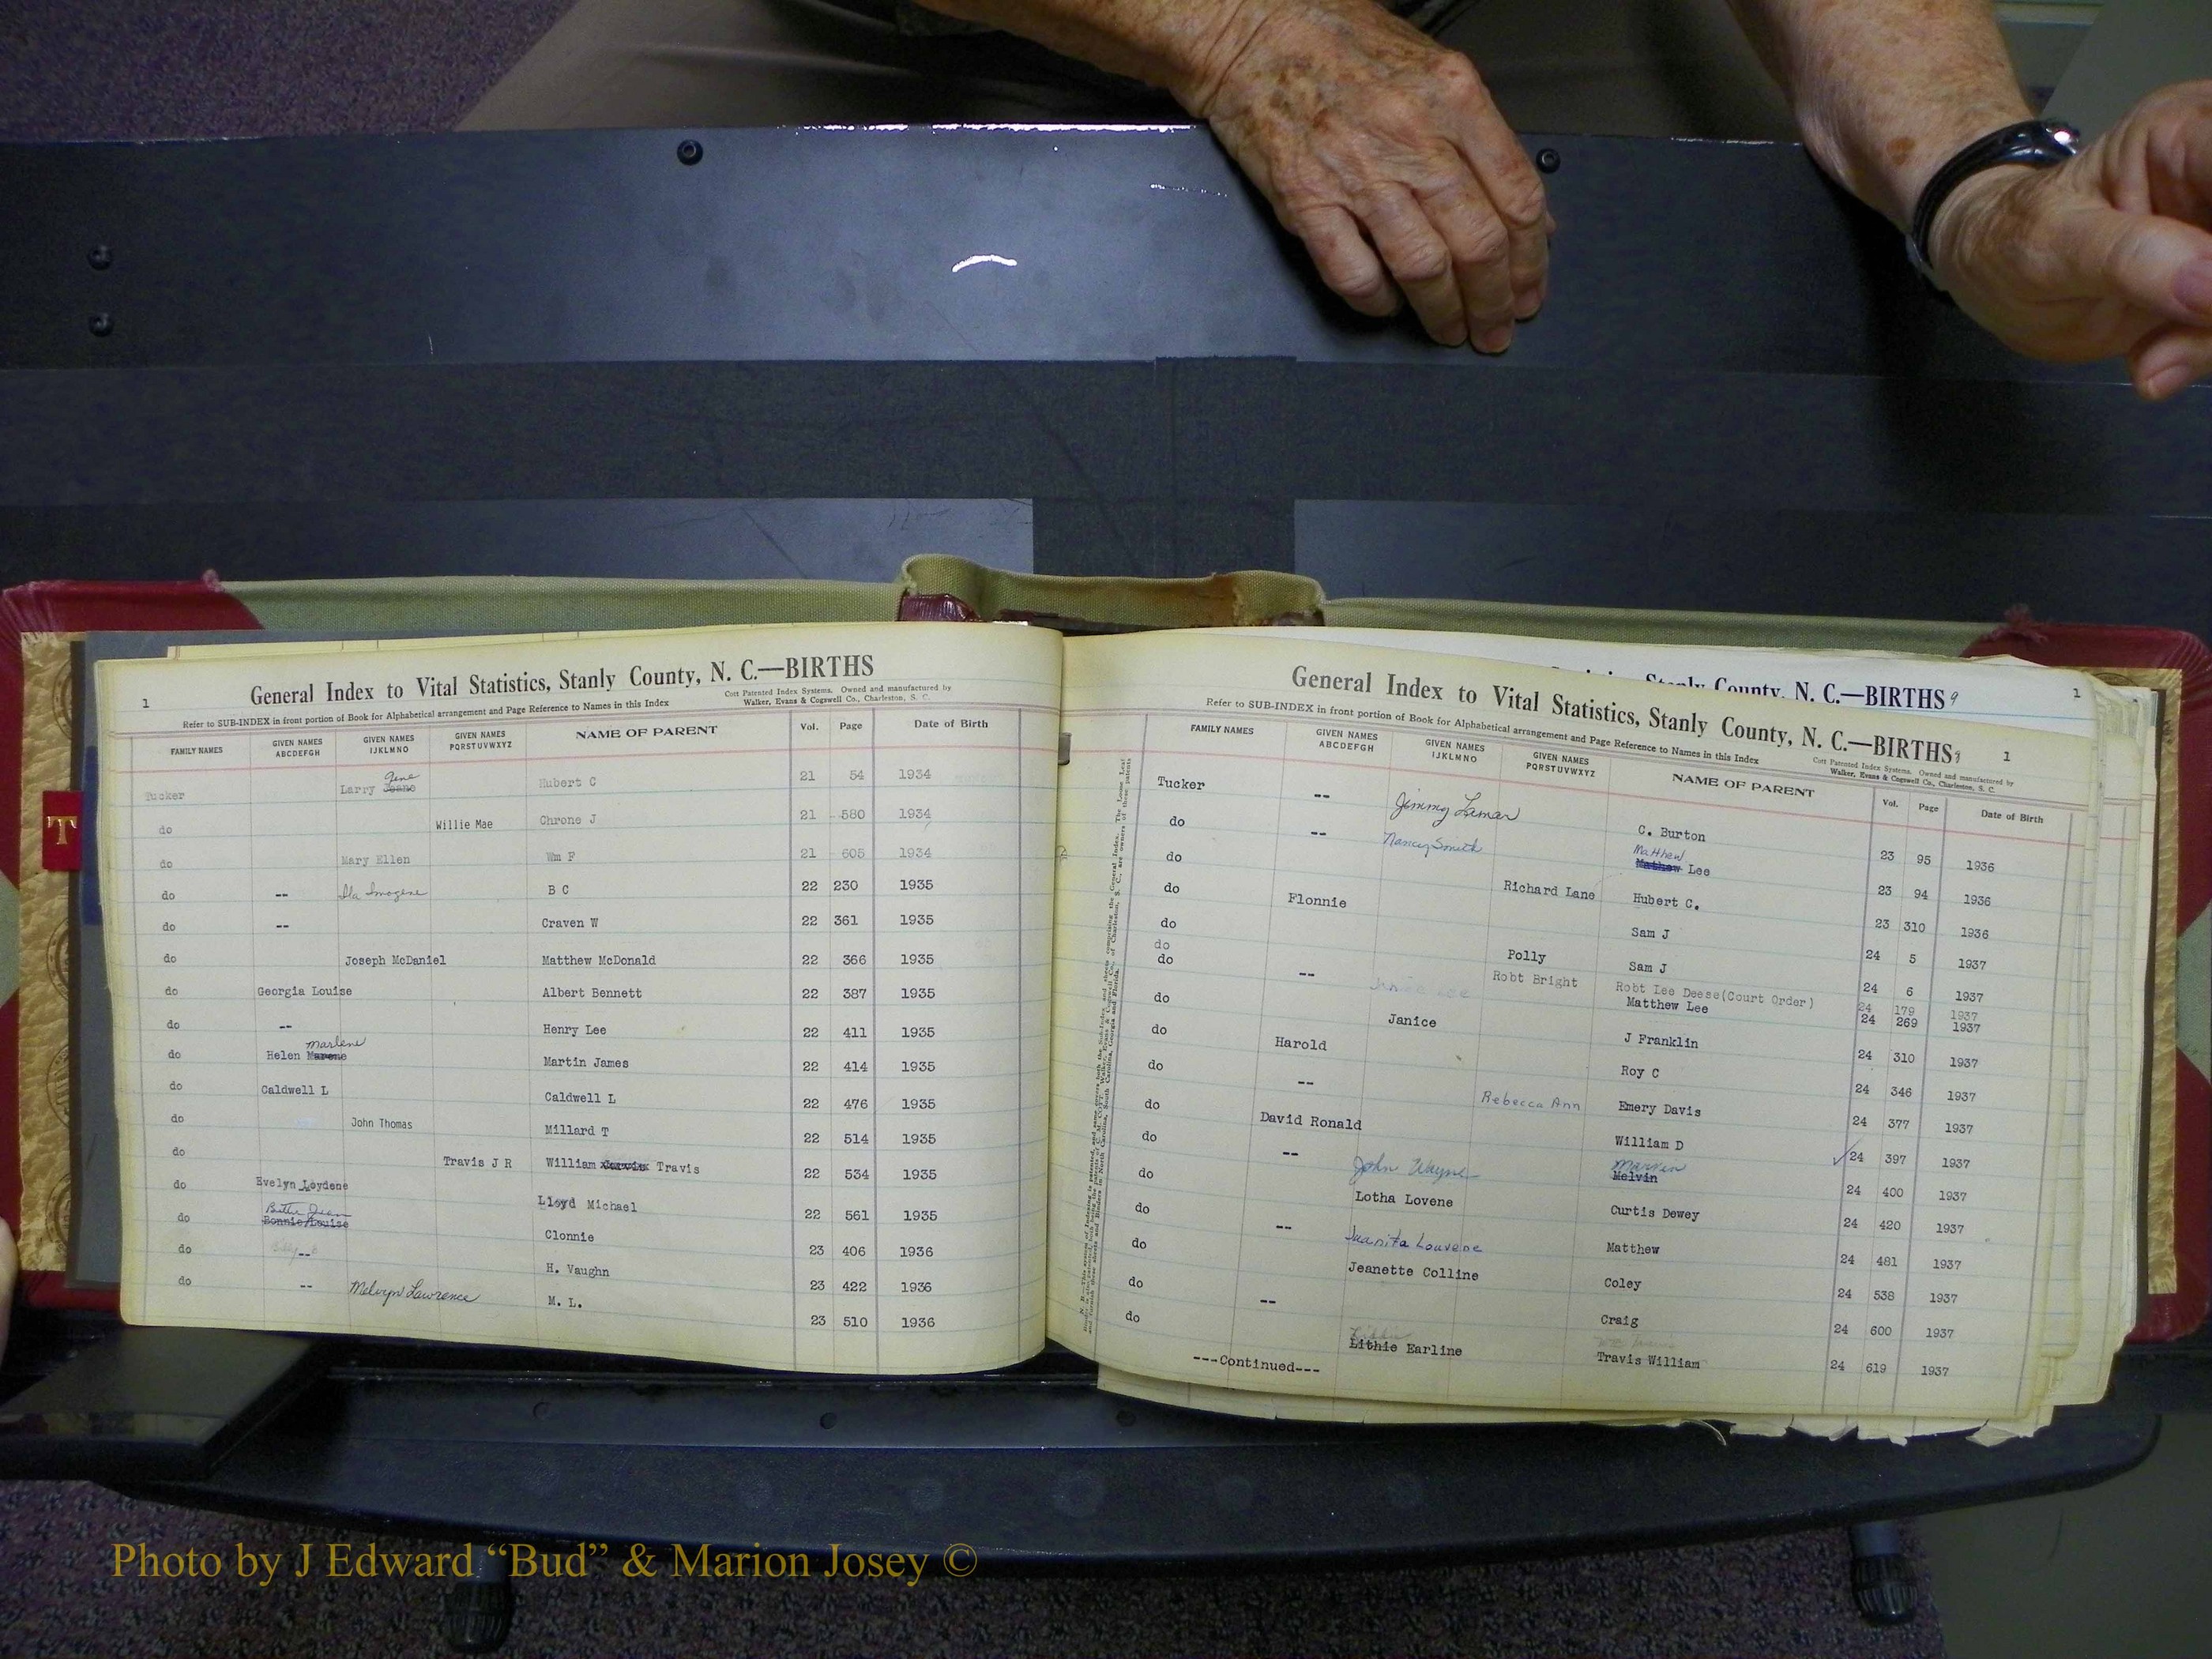 1
General Index to Vital Statistics, Stanly County, N. C.—BIRTHS
Refer to SUB-INDEX in front portion of Book for Alphabetical arrangement and Page Reference to Names in this Index
Cott Patented Index Systems. Owned and manufactured by
Walker, Evans & Cogswell Co., Charleston, S. C.
FAMILY NAMES GIVEN NAMES ABCDEFGH GIVEN NAMES IJKLMNO GIVEN NAMES PQRSTUVWXYZ NAME OF PARENT Vol. Page Date of Birth
Tucker Larry Jeane Gene Hubert C 21 54 1934
do Willie Mae Chrone J 21 580 1934
do Mary Ellen Wm F 21 605 1934
do -- Ila Imogene B C 22 230 1935
do -- Craven W 22 361 1935
do Joseph McDaniel Matthew McDonald 22 366 1935
do Georgia Louise Albert Bennett 22 387 1935
do -- Henry Lee 22 411 1935
do Helen Marlene Martin James 22 414 1935
do Caldwell L Caldwell L 22 476 1935
do John Thomas Millard T 22 514 1935
do Travis J R William Travis 22 534 1935
do Evelyn Loydene Lloyd Michael 22 561 1935
do Bettie Jean Bonnie Louise Clonnie 23 406 1936
do -- H. Vaughn 23 422 1936
do -- Melvyn Lawrence M. L. 23 510 1936
T
Stanly County, N. C.—BIRTHS 9
1
General Index to Vital Statistics, Stanly County, N. C.—BIRTHS 9
1
Refer to SUB-INDEX in front portion of Book for Alphabetical arrangement and Page Reference to Names in this Index
Cott Patented Index Systems. Owned and manufactured by
Walker, Evans & Cogswell Co., Charleston, S. C.
FAMILY NAMES GIVEN NAMES ABCDEFGH GIVEN NAMES IJKLMNO GIVEN NAMES PQRSTUVWXYZ NAME OF PARENT Vol. Page Date of Birth
Tucker -- Jimmy Lamar C. Burton 23 95 1936
do -- Nancy Smith Matthew Mathew Lee 23 94 1936
do Richard Lane Hubert C. 23 310 1936
do Flonnie Sam J 24 5 1937
do Polly Sam J 24 6 1937
do Robt Bright Robt Lee Deese(Court Order) 24 179 1937
do -- Janice Lee Matthew Lee 24 269 1937
do Janice J Franklin 24 310 1937
do Harold Roy C 24 346 1937
do -- Rebecca Ann Emery Davis 24 377 1937
do David Ronald William D 24 397 1937
do -- John Wayne Marvin Melvin 24 400 1937
do Lotha Lovene Curtis Dewey 24 420 1937
do -- Juanita Louvene Matthew 24 481 1937
do Jeanette Colline Coley 24 538 1937
do -- Craig 24 600 1937
do Lithie Earline Travis William 24 619 1937
---Continued---
Photo by J Edward “Bud” & Marion Josey ©